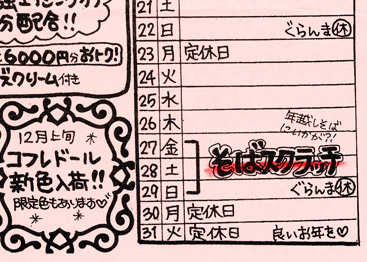 分配合!!
6000円分おトク!
スクリーム付き
12月上旬
コフレドール
新色入荷!!
限定色もありますよ♡
21 土
22 日 ぐらんま休
23 月 定休日
24 火
25 水
26 木
年越しそば
にいかが?!
27 金
そばスクラッチ
28 土
29 日 ぐらんま休
30 月 定休日
31 火 定休日 良いお年を♡